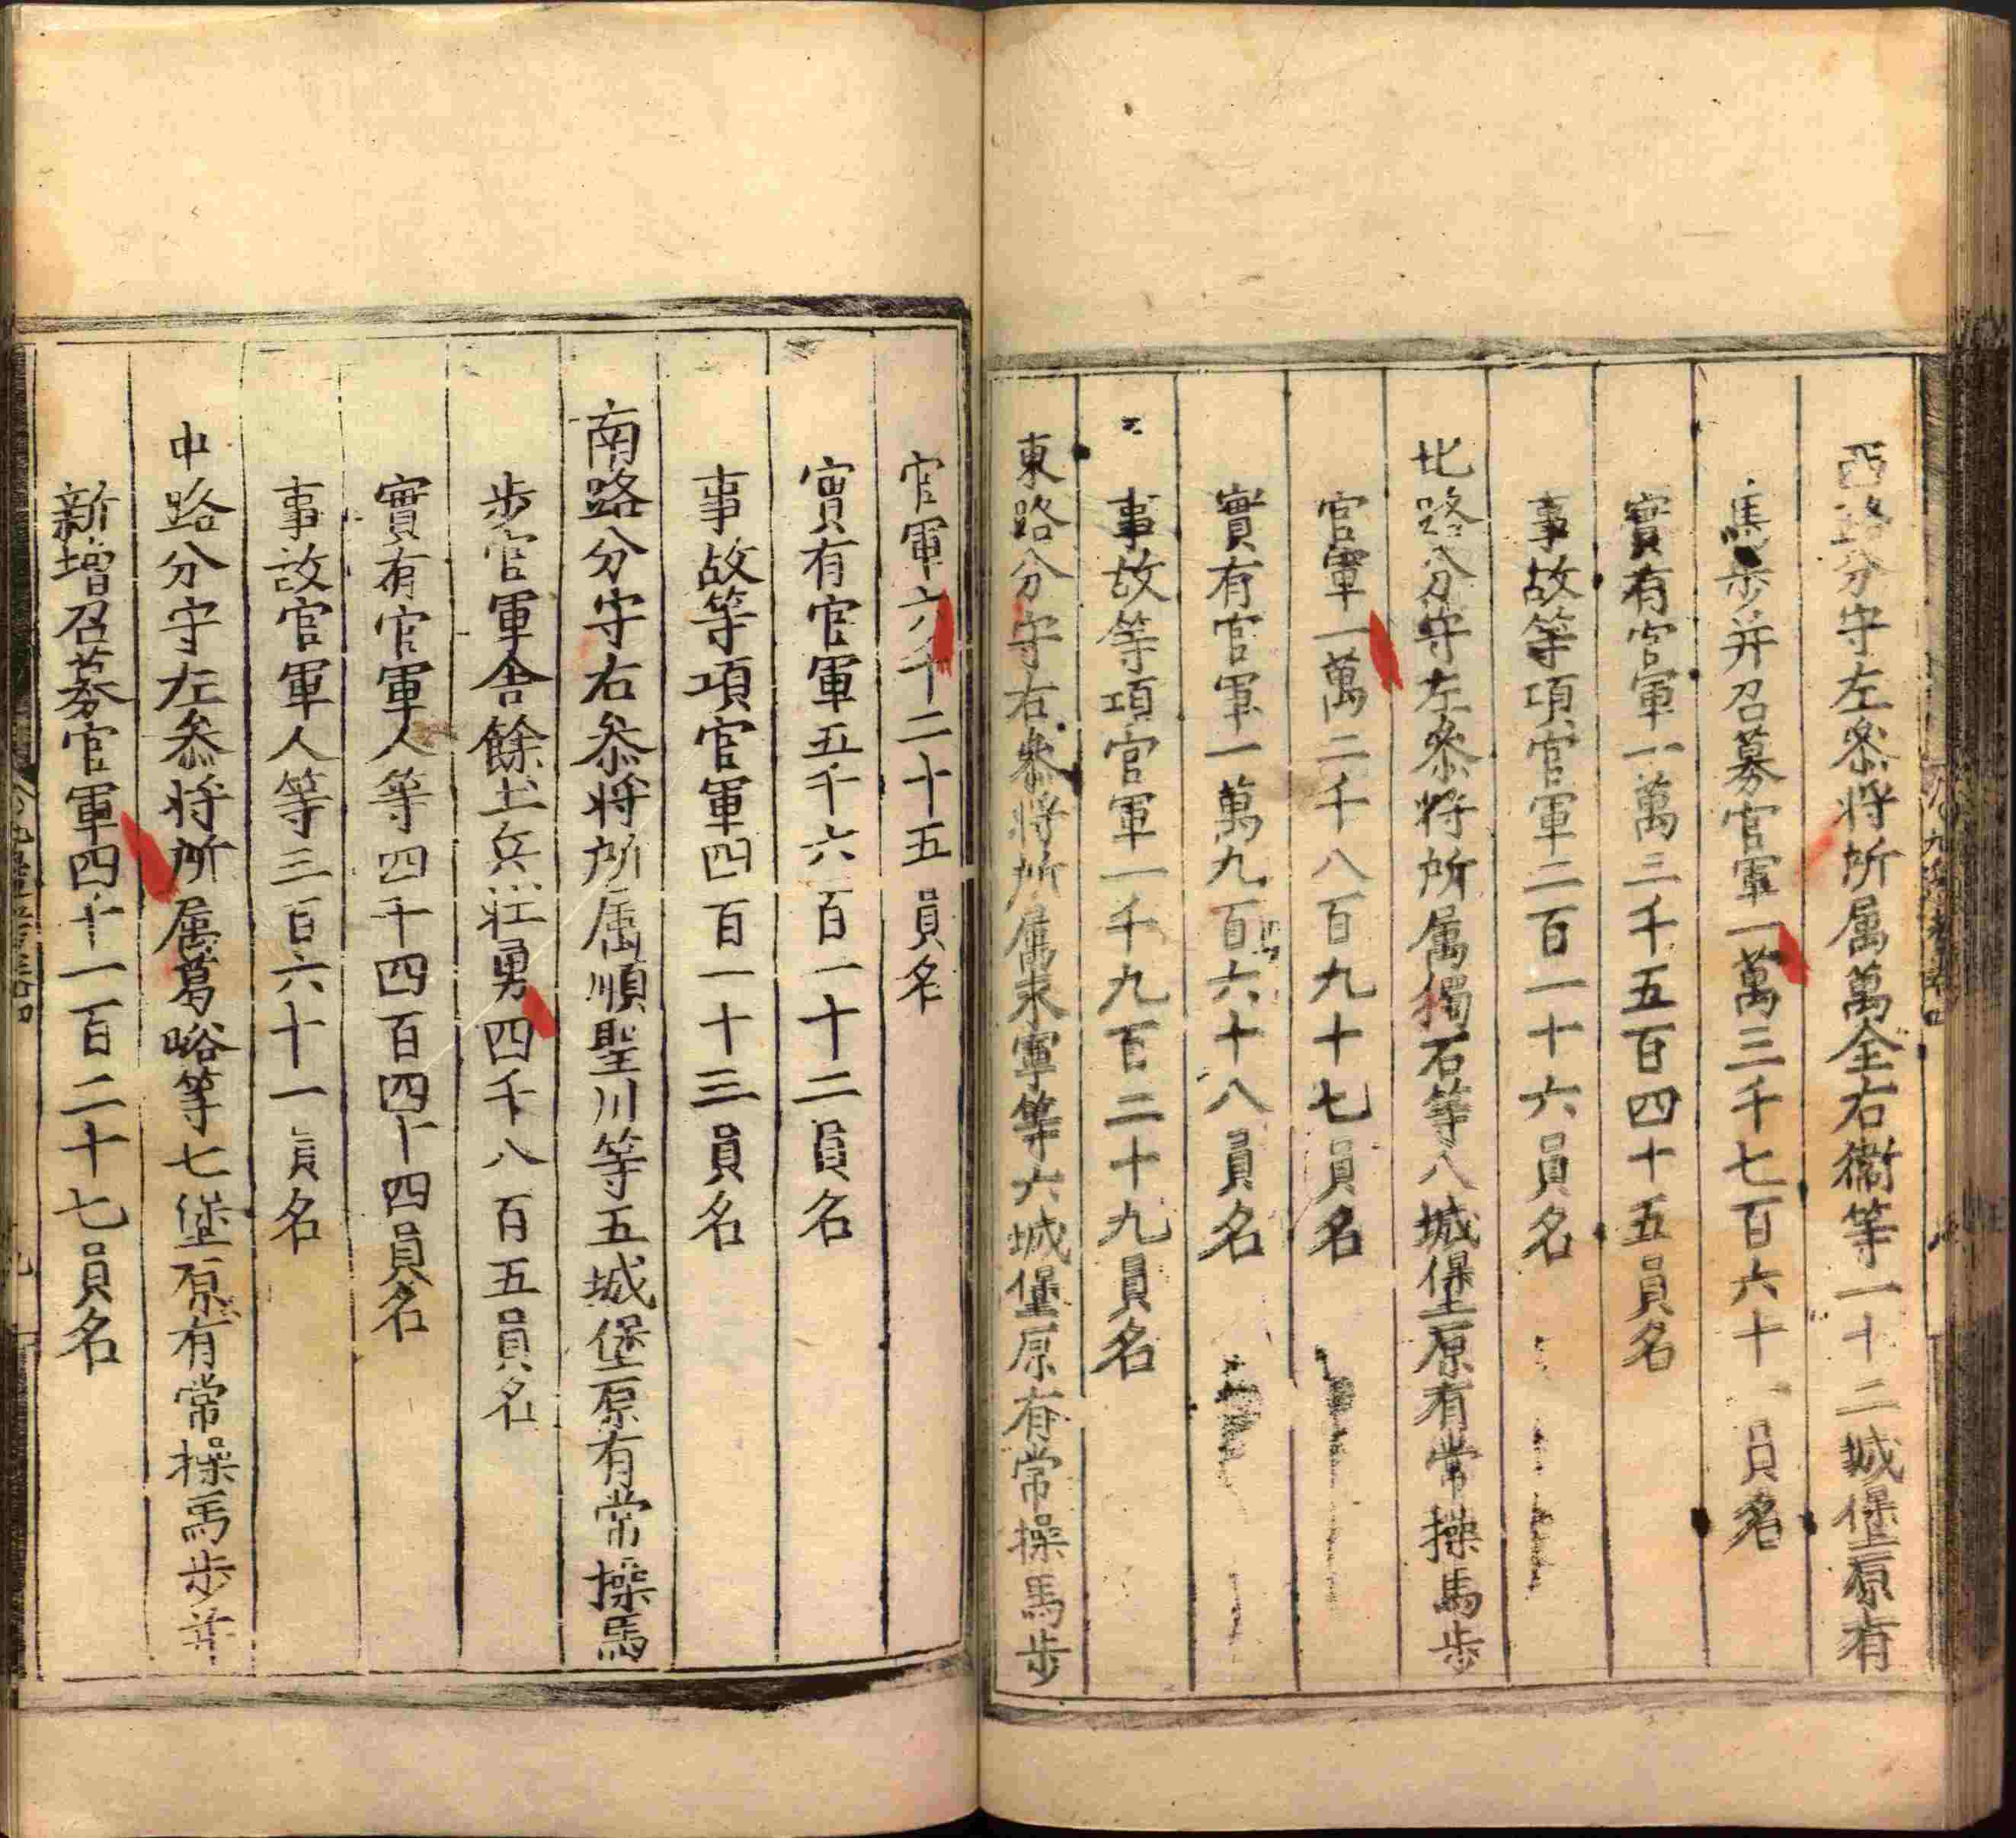 西路分守左叅將所属萬全右衞等一十二城堡原有
馬步并召募官軍一萬三千七百六十一員名
實有官軍一萬三千五百四十五員名
事故等項官軍二百一十六員名
北路分守左叅將所属獨石等八城堡原有常操馬步
官軍一萬二千八百九十七員名
實有官軍一萬九百六十八員名
事故等項官軍一千九百二十九員名
東路分守右叅將所属永寧等六城堡原有常操馬步
官軍六千二十五員名
實有官軍五千六百一十二員名
事故等項官軍四百一十三員名
南路分守右叅將所属順聖川等五城堡原有常操馬
步官軍舎餘土兵壯勇四千八百五員名
實有官軍人等四千四百四十四員名
事故官軍人等三百六十一員名
中路分守左叅將所属葛峪等七堡原有常操馬步并
新增召募官軍四千一百二十七員名